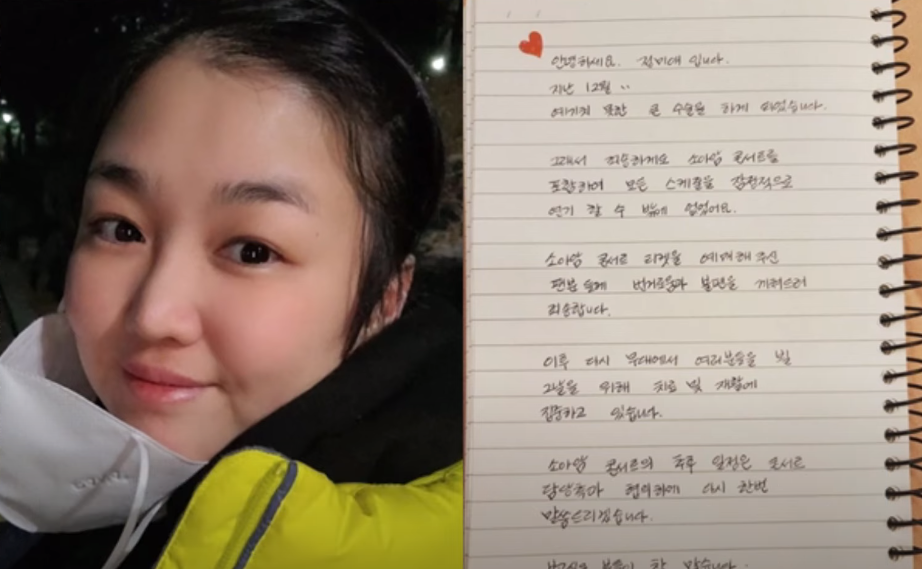 안녕하세요. 정미애 입니다.
지난 12월..
예기치 못한 큰 수술을 하게 되었습니다.
그래서 죄송하게도 소아암 콘서트를
포함하여 모든 스케줄을 잠정적으로
연기 할 수 밖에 없었어요.
소아암 콘서트 티켓을 예매해 주신
팬분들께 번거로움과 불편을 끼쳐드려
죄송합니다.
이후 다시 무대에서 여러분들을 뵐
그날을 위해 치료 및 재활에
집중하고 있습니다.
소아암 콘서트의 추후 일정은 콘서트
담당측과 협의하에 다시 한번
말씀드리겠습니다.